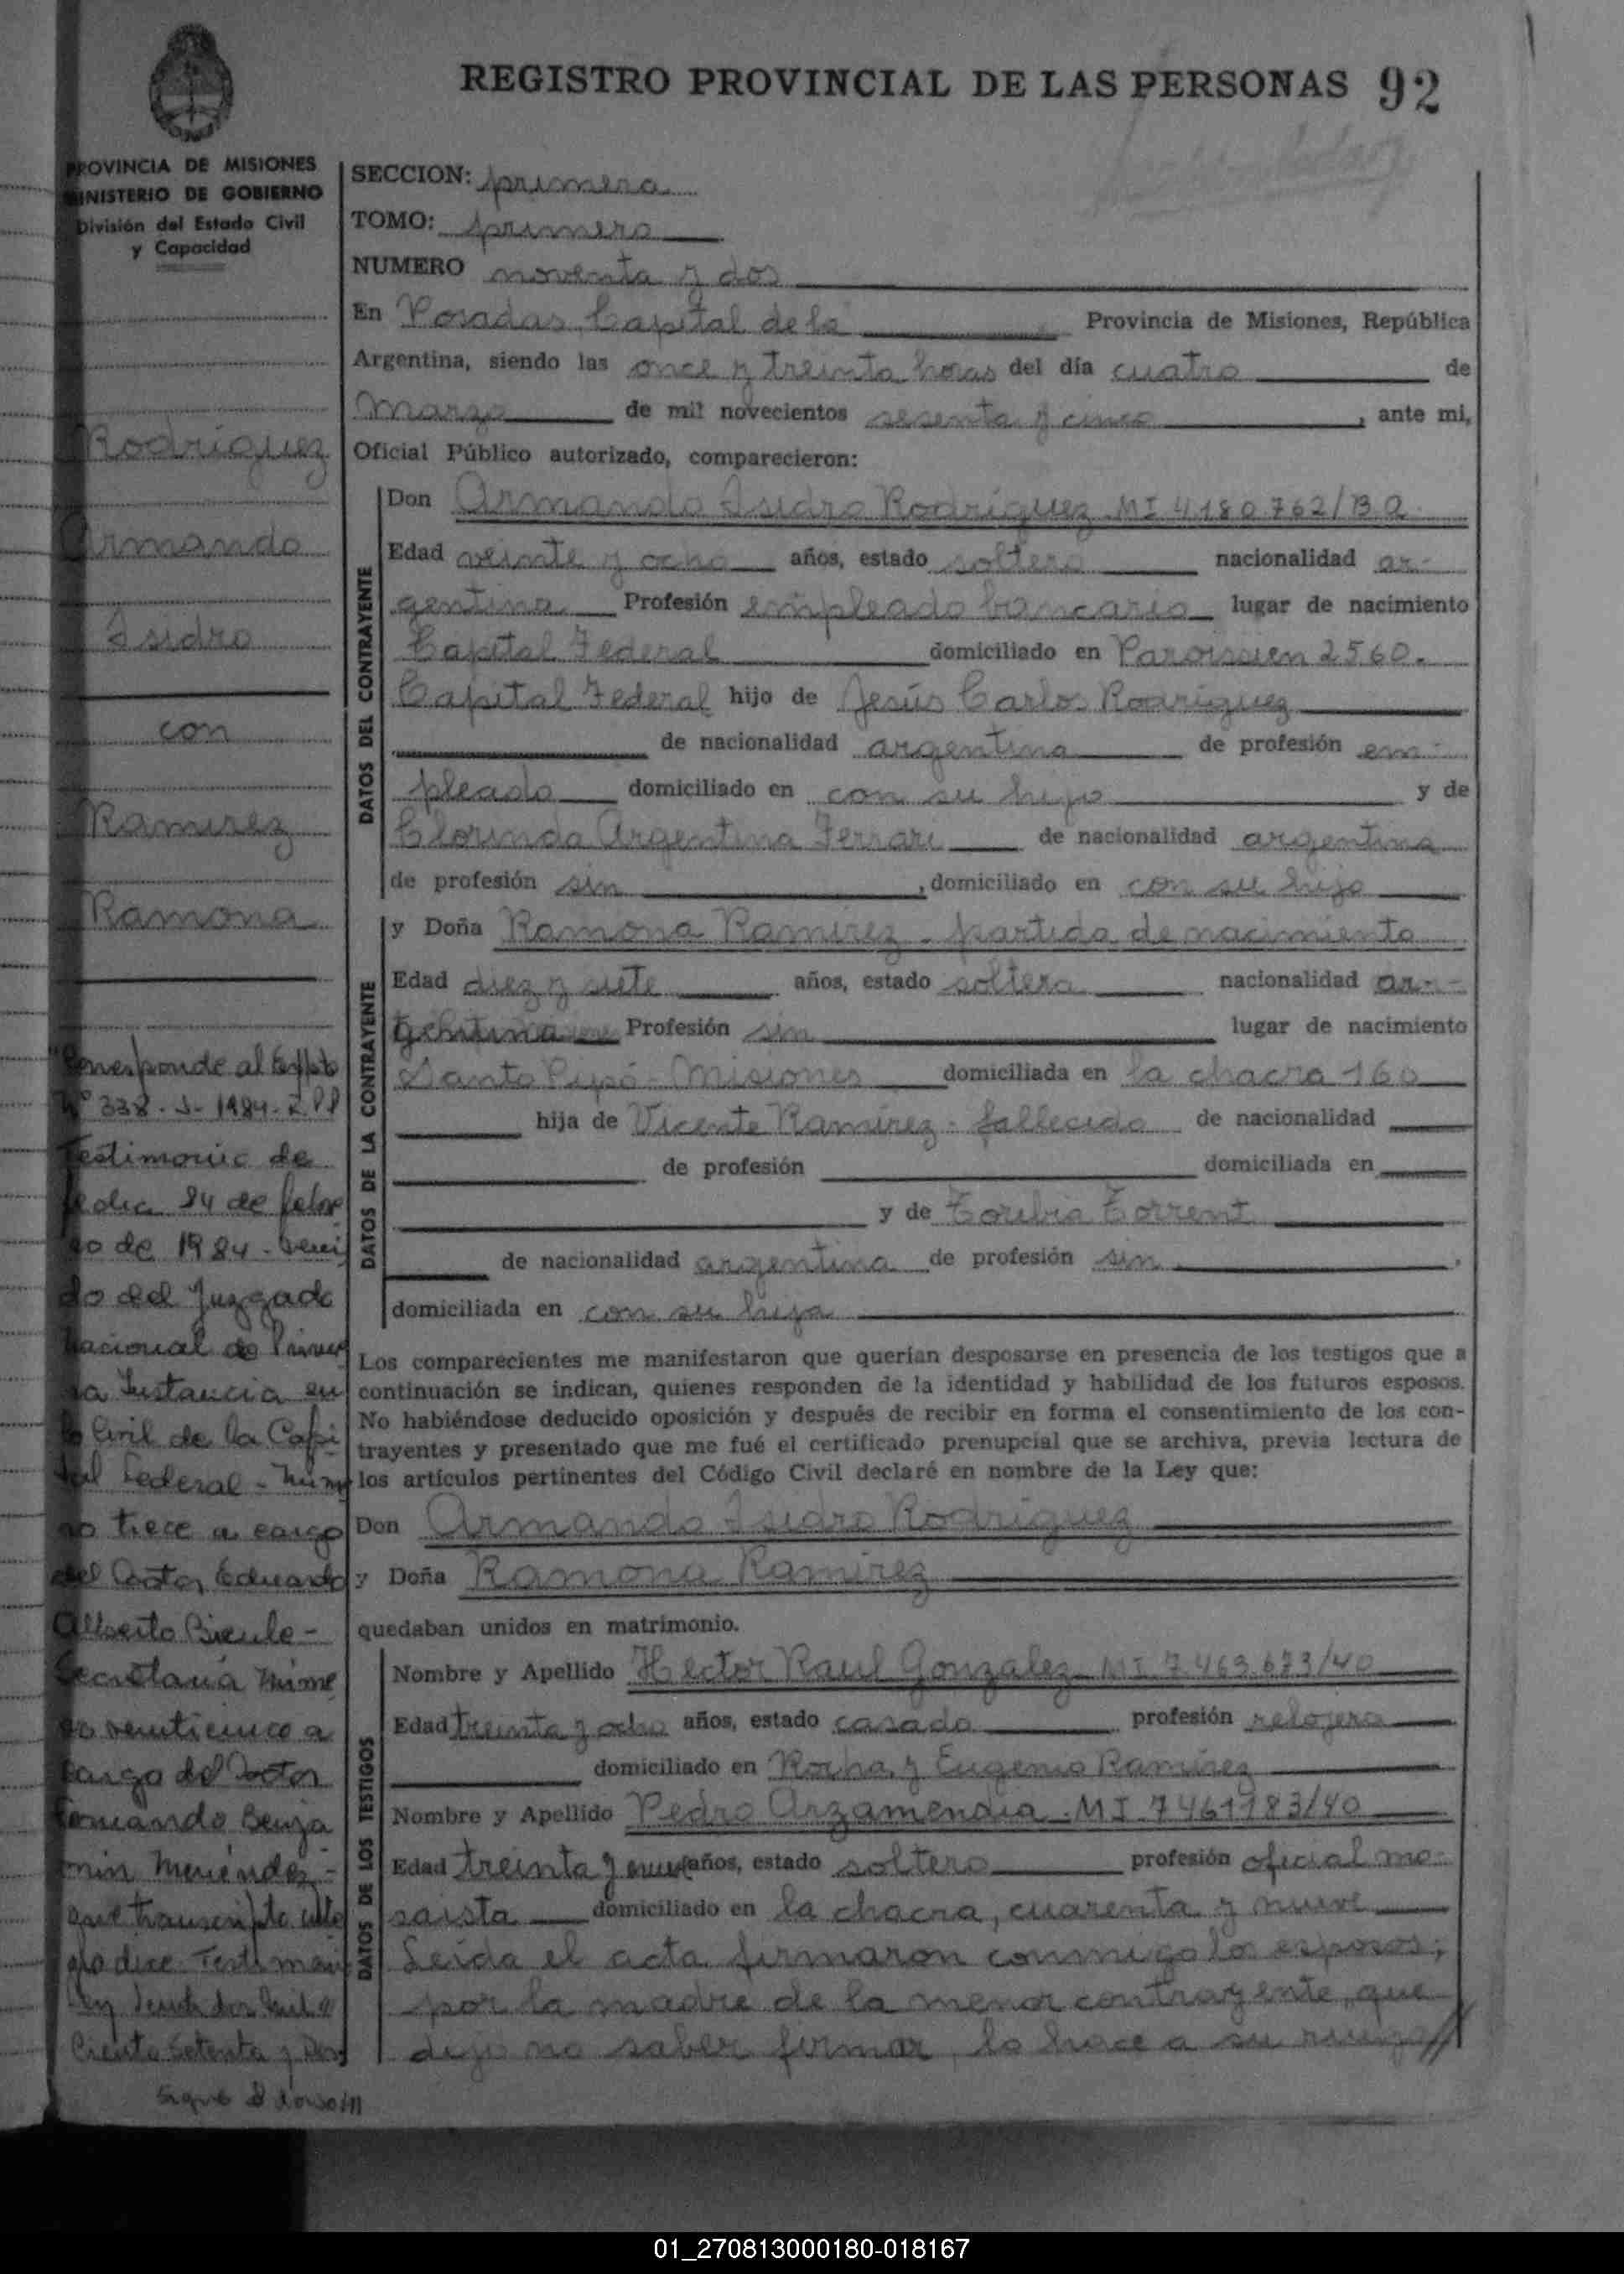 REGISTRO PROVINCIAL DE LAS PERSONAS 92
PROVINCIA DE MISIONES
MINISTERIO DE GOBIERNO
División del Estado Civil
y Capacidad
Rodríguez
Armando
Isidro
con
Ramirez
Ramona
Corresponde al Expte
Nº 338-S-1984-R.P.P
Testimonio de
fecha 24 de febre
ro de 1984 - veni
do del Juzgado
Nacional de Prime
ra Instancia en
lo Civil de la Capi
tal Federal - Núme
ro trece a cargo
del Doctor Eduardo
Alberto
Secretaria Núme
ro veinticinco a
cargo del Doctor
Fernando Benja
min Menéndez -
que transcripto
dice: Testimonio
Ciento Setenta y Dos
Sigue al dorso ///
SECCION: primera
TOMO: primero
NUMERO noventa y dos
En Posadas, Capital de la Provincia de Misiones, República
Argentina, siendo las once y treinta horas del día cuatro de
Marzo de mil novecientos sesenta y cinco, ante mi,
Oficial Público autorizado, comparecieron:
DATOS DEL CONTRAYENTE
Don Armando Isidro Rodríguez MI 4180762/BA
Edad veinte y ocho años, estado soltero nacionalidad ar-
gentina Profesión empleado bancario lugar de nacimiento
Capital Federal domiciliado en Paroissien 2560.
Capital Federal hijo de Jesús Carlos Rodríguez
de nacionalidad argentina de profesión em-
pleado domiciliado en con su hijo y de
Clorinda Argentina Ferrari de nacionalidad argentina
de profesión sin, domiciliado en con su hijo
DATOS DE LA CONTRAYENTE
y Doña Ramona Ramirez - partida de nacimiento
Edad diez y siete años, estado soltera nacionalidad ar-
gentina Profesión sin lugar de nacimiento
Santo Pipó - Misiones domiciliada en la chacra 160
hija de Vicente Ramírez - fallecido de nacionalidad
de profesión domiciliada en
y de Toribia Torrent
de nacionalidad argentina de profesión sin,
domiciliada en con su hija
Los comparecientes me manifestaron que querían desposarse en presencia de los testigos que a
continuación se indican, quienes responden de la identidad y habilidad de los futuros esposos.
No habiéndose deducido oposición y después de recibir en forma el consentimiento de los con-
trayentes y presentado que me fué el certificado prenupcial que se archiva, previa lectura de
los artículos pertinentes del Código Civil declaré en nombre de la Ley que:
Don Armando Isidro Rodríguez
y Doña Ramona Ramírez
quedaban unidos en matrimonio.
DATOS DE LOS TESTIGOS
Nombre y Apellido Hector Raul Gonzalez MI 7.463.673/40
Edad treinta y ocho años, estado casado profesión relojero
domiciliado en Rocha y Eugenio Ramírez
Nombre y Apellido Pedro Arzamendia - MI 7461183/40
Edad treinta y nueve años, estado soltero profesión oficial mo-
saista domiciliado en la chacra, cuarenta y nueve
Leída el acta firmaron conmigo lo esposos;
por la madre de la menor contrayente, que
dijo no saber firmar, lo hace a su ruego //
01_270813000180-018167